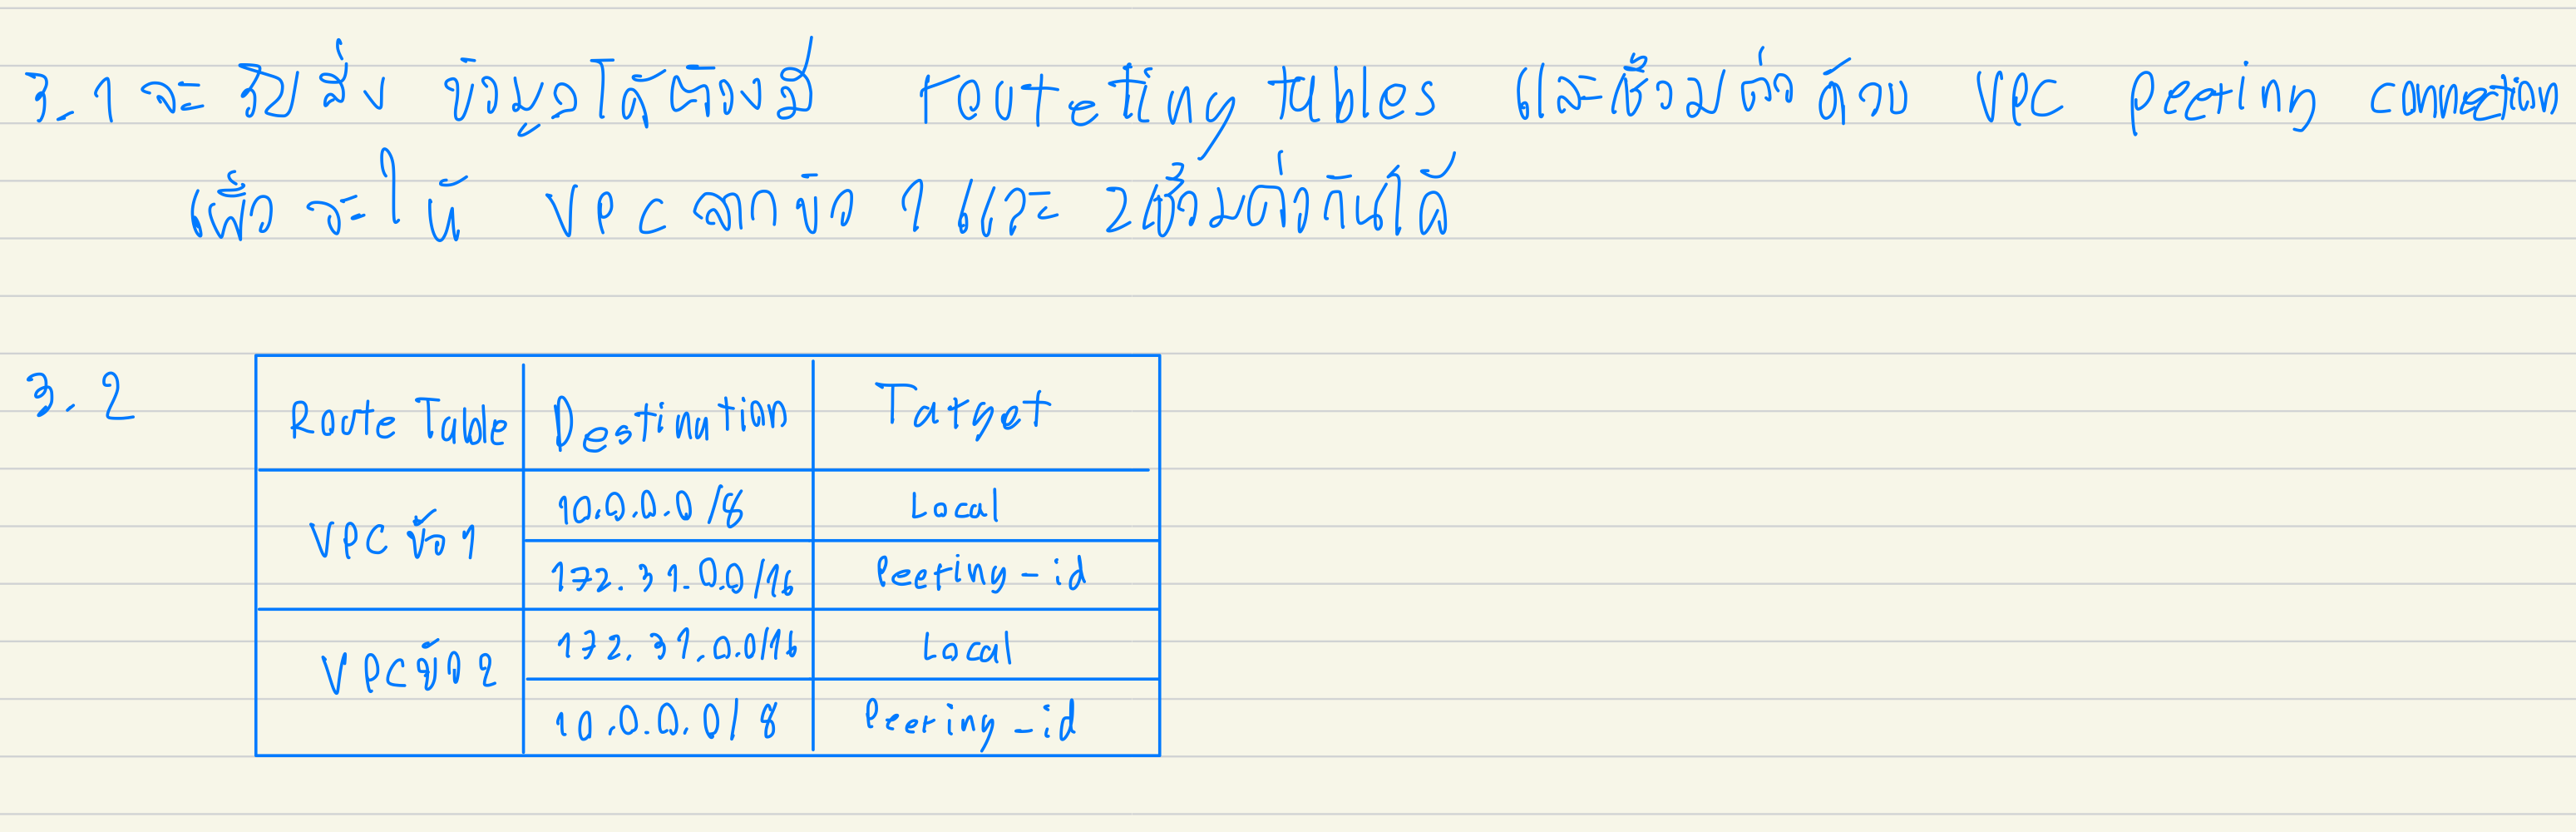 3.1 จะรับส่งข้อมูลได้ต้องมี routeting tables และเชื่อมต่อด้วย VPC peering connection
เพื่อจะให้ VPC จากข้อ 1 และ 2 เชื่อมต่อกันได้
3.2
Route Table Destination Target
VPC ข้อ 1
10.0.0.0/8 Local
172.31.0.0/16 Peering-id
VPC ข้อ 2
172.31.0.0/16 Local
10.0.0.0/8 Peering-id